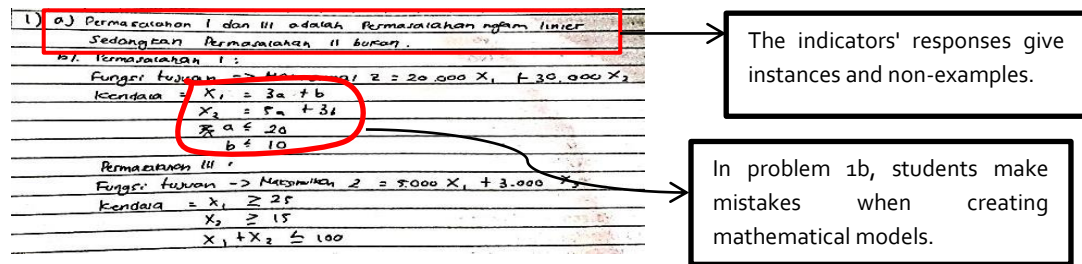 1) a) Permasalahan I dan III adalah Permasalahan ngfam linier
Sedangkan Permasalahan II bukan.
b). Permasalahan I :
Fungsi tujuan -> 2 = 20.000 X₁ + 30.000 X₂
Kendala = X₁ = 3a + b
X₂ = 5a + 3b
a ≤ 20
b ≤ 10
Permasalahan III :
Fungsi tujuan -> Maksimalkan 2 = 5.000 X₁ + 3.000 X₂
Kendala = X₁ ≥ 25
X₂ ≥ 15
X₁ + X₂ ≤ 100
The indicators' responses give
instances and non-examples.
In problem 1b, students make
mistakes when creating
mathematical models.